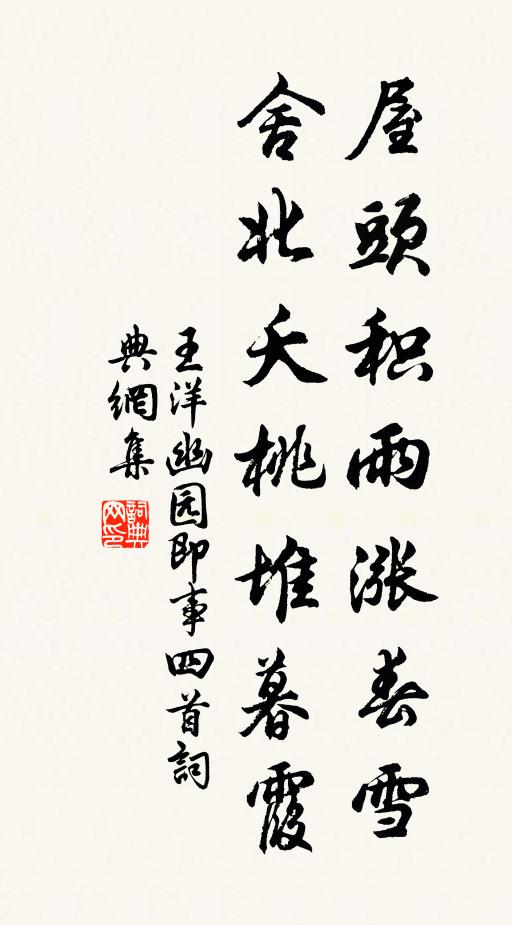 屋頭积雨漲春雪
舍北夭桃堆暮霞
王洋幽园即事四首詞
典網集
詞典网印